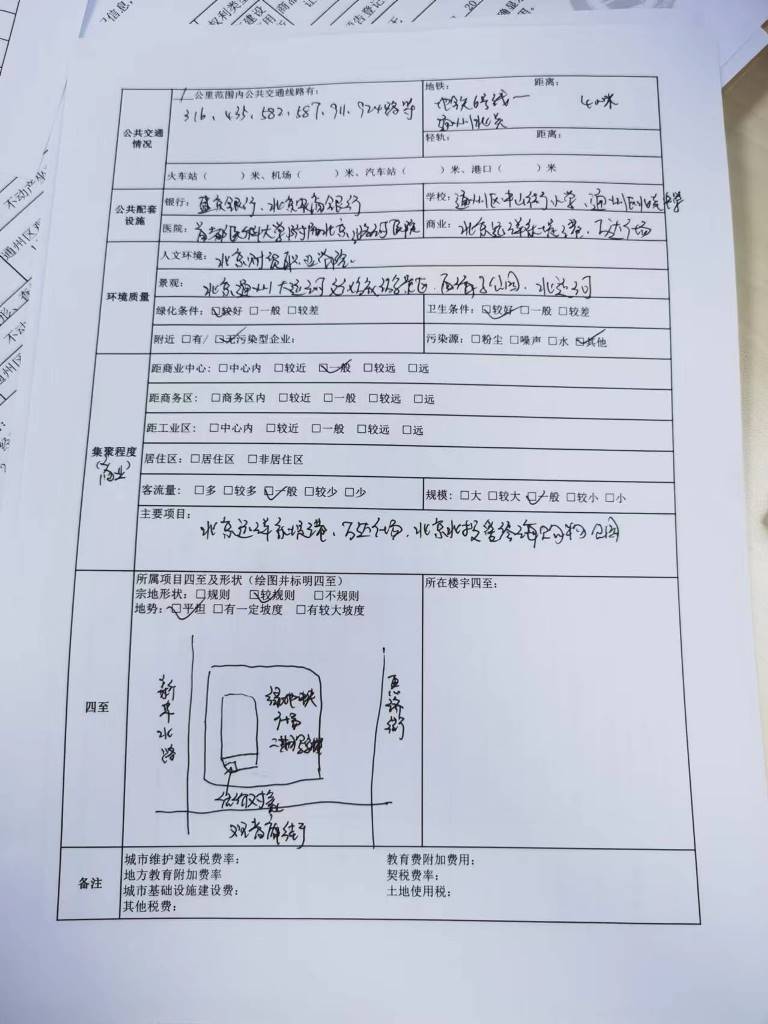 公共交通情况
1 公里范围内公共交通线路有:
316、435、582、587、911、924路等
地铁: 距离:
地铁6号线—
通州北关
轻轨: 距离:
火车站( )米、机场( )米、汽车站( )米、港口( )米
公共配套设施
银行: 盛京银行、北京农商银行
学校: 通州区中山街小学、通州区北关中学
医院: 首都医科大学附属北京潞河医院
商业: 北京远洋乐堤港、万达广场
环境质量
人文环境: 北京财贸职业学院。
景观: 北京通州大运河文化旅游景区、西海子公园、北运河
绿化条件: ☑较好 □一般 □较差
卫生条件: ☑较好 □一般 □较差
附近 □有/ ☑无污染型企业:
污染源: □粉尘 □噪声 □水 ☑其他
集聚程度
(商业)
距商业中心: □中心内 □较近 ☑一般 □较远 □远
距商务区: □商务区内 □较近 □一般 □较远 □远
距工业区: □中心内 □较近 □一般 □较远 □远
居住区: □居住区 □非居住区
客流量: □多 □较多 ☑一般 □较少 □少
规模: □大 □较大 ☑一般 □较小 □小
主要项目:
北京远洋乐堤港、万达广场、北京北投
四至
所属项目四至及形状(绘图并标明四至)
宗地形状: □规则 ☑较规则 □不规则
地势: ☑平坦 □有一定坡度 □有较大坡度
所在楼宇四至:
新华北路
绿地中央
广场
二期
惠济街
估价对象
观音庵街
备注
城市维护建设税费率:
教育费附加费用:
地方教育附加费率
契税费率:
城市基础设施建设费:
土地使用税:
其他税费: